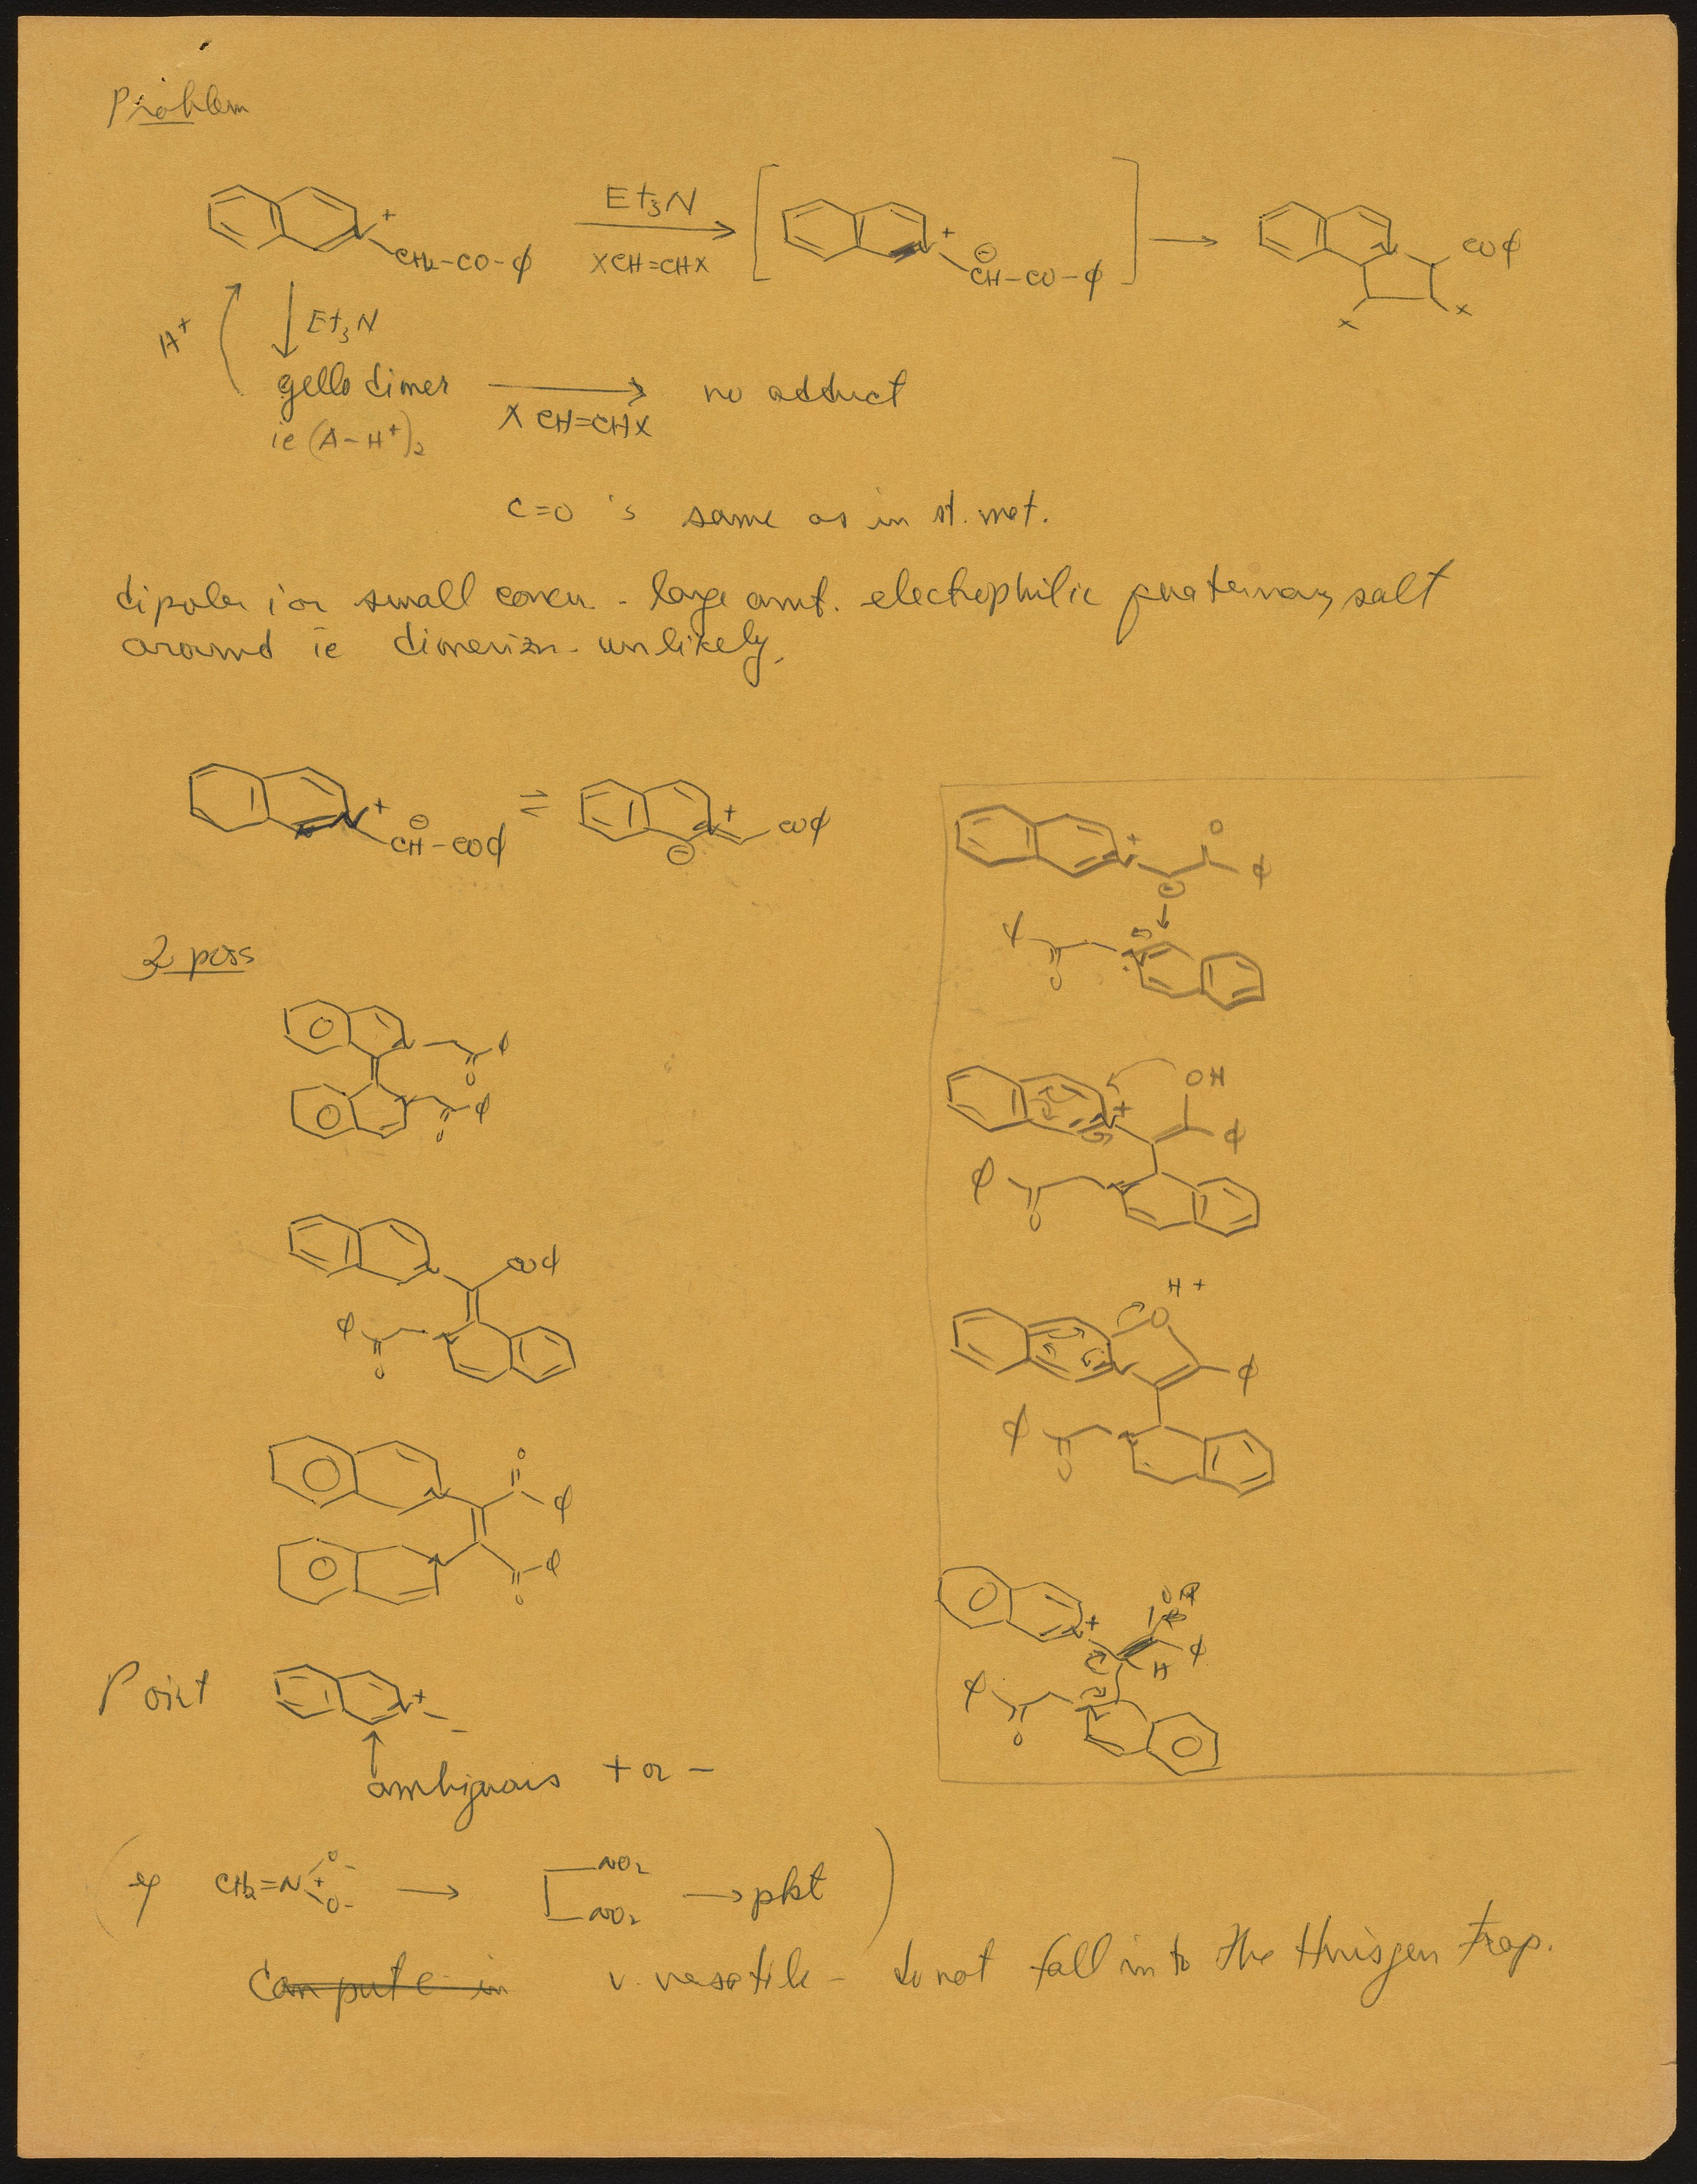 Problem
Et3N
XCH=CHX
+
N
CH2-CO-φ
+
N
⊖
CH-CO-φ
N
COφ
X
X
H+
Et3N
gello dimer
ie (A-H+)2
X CH=CHX
no adduct
C=O's same as in st. mat.
dipolar ion small concn. - large amt. electrophilic quaternary salt
around ie dimerizn. unlikely.
N + ⊖
CH-COφ
⇌
N + ⊖
COφ
3 poss
N O φ
N O φ
N COφ
φ O N
N O φ
N O φ
N + O ⊖ φ
φ O N
OH
N + φ
φ O N
H+
O N φ
φ O N
N + O H φ
φ O N
Point
N + -
ambiguous + or -
(eg CH2=N+ O- O- → NO2 NO2 → pkt)
Can put e in
v. versatile - do not fall into the Huisgen trap.